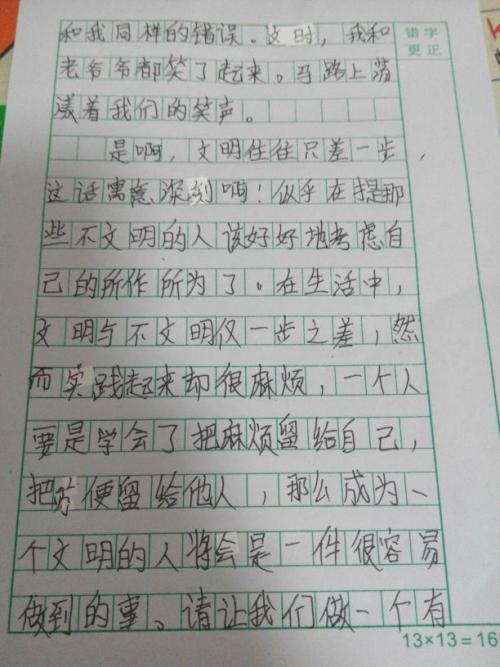 和我同样的错误。这时，我和
老爷爷都笑了起来。马路上荡
漾着我们的笑声。
是啊，文明往往只差一步，
这话寓意深刻啊！似乎在提那
些不文明的人该好好地考虑自
己的所作所为了。在生活中，
文明与不文明仅一步之差，然
而实践起来却很麻烦，一个人
要是学会了把麻烦留给自己，
把方便留给他人，那么成为一
个文明的人将会是一件很容易
做到的事。请让我们做一个有
错字
更正
13×13=16